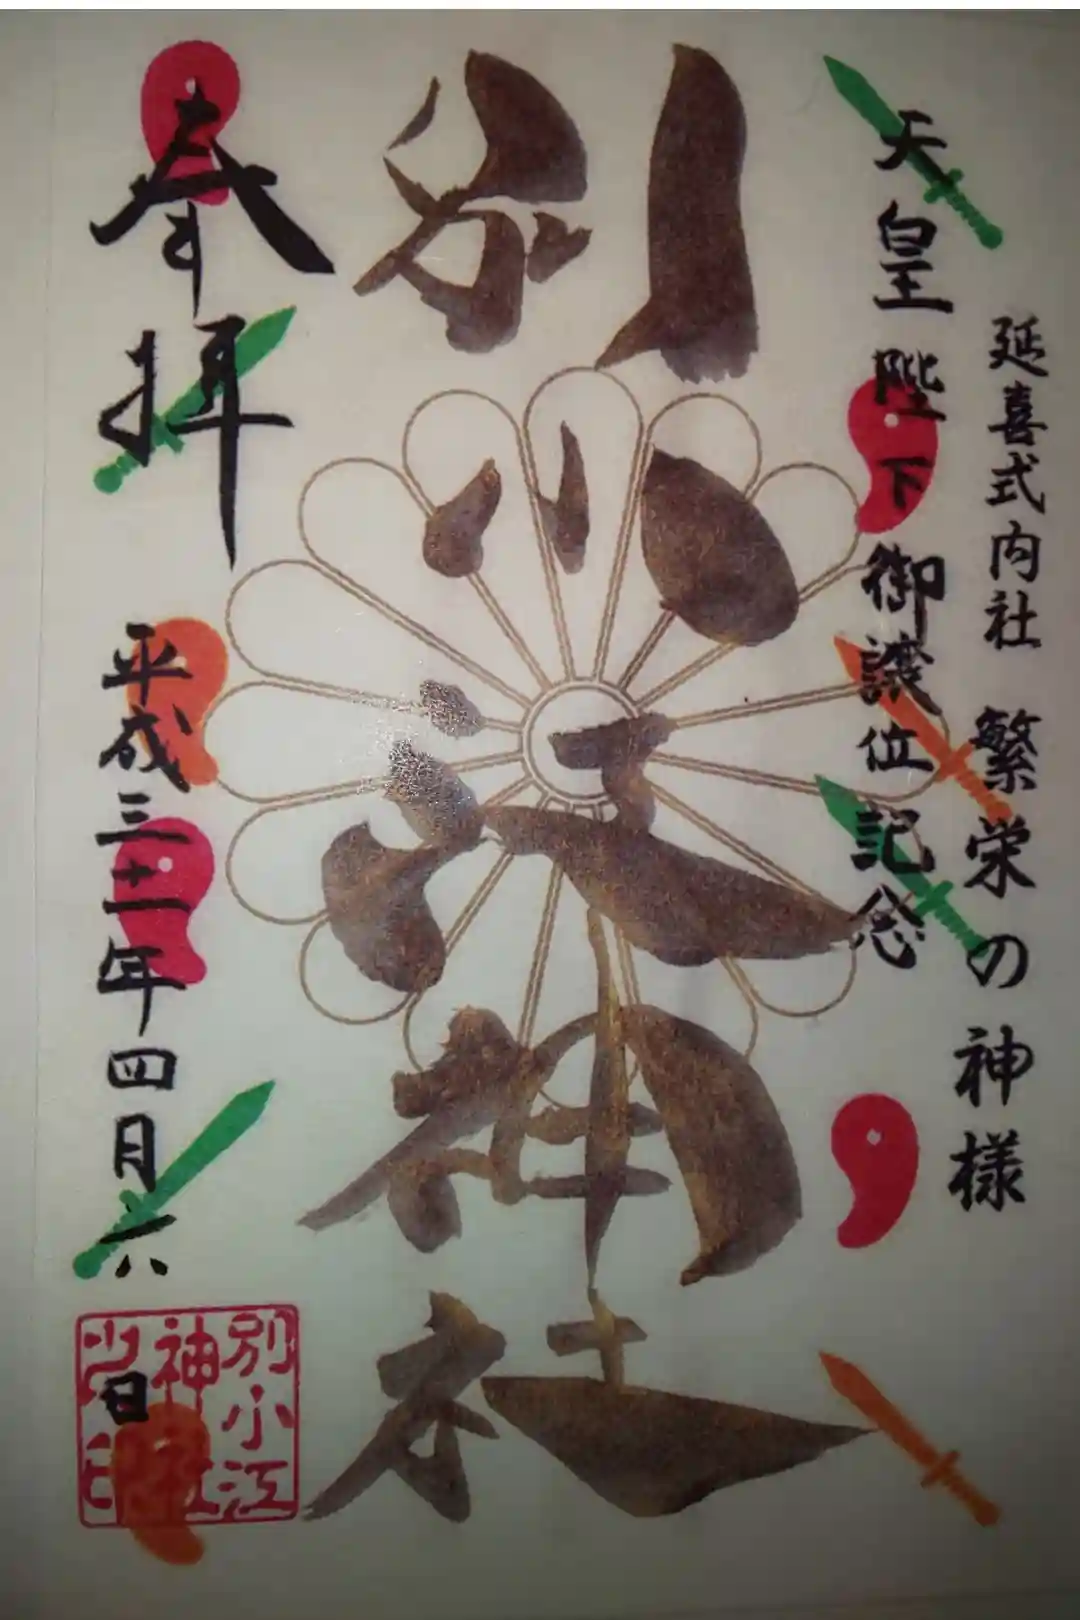 延喜式内社 繁栄の神様
天皇陛下御譲位記念
別小江神社
奉拝
平成三十一年四月六日
別小江
神社